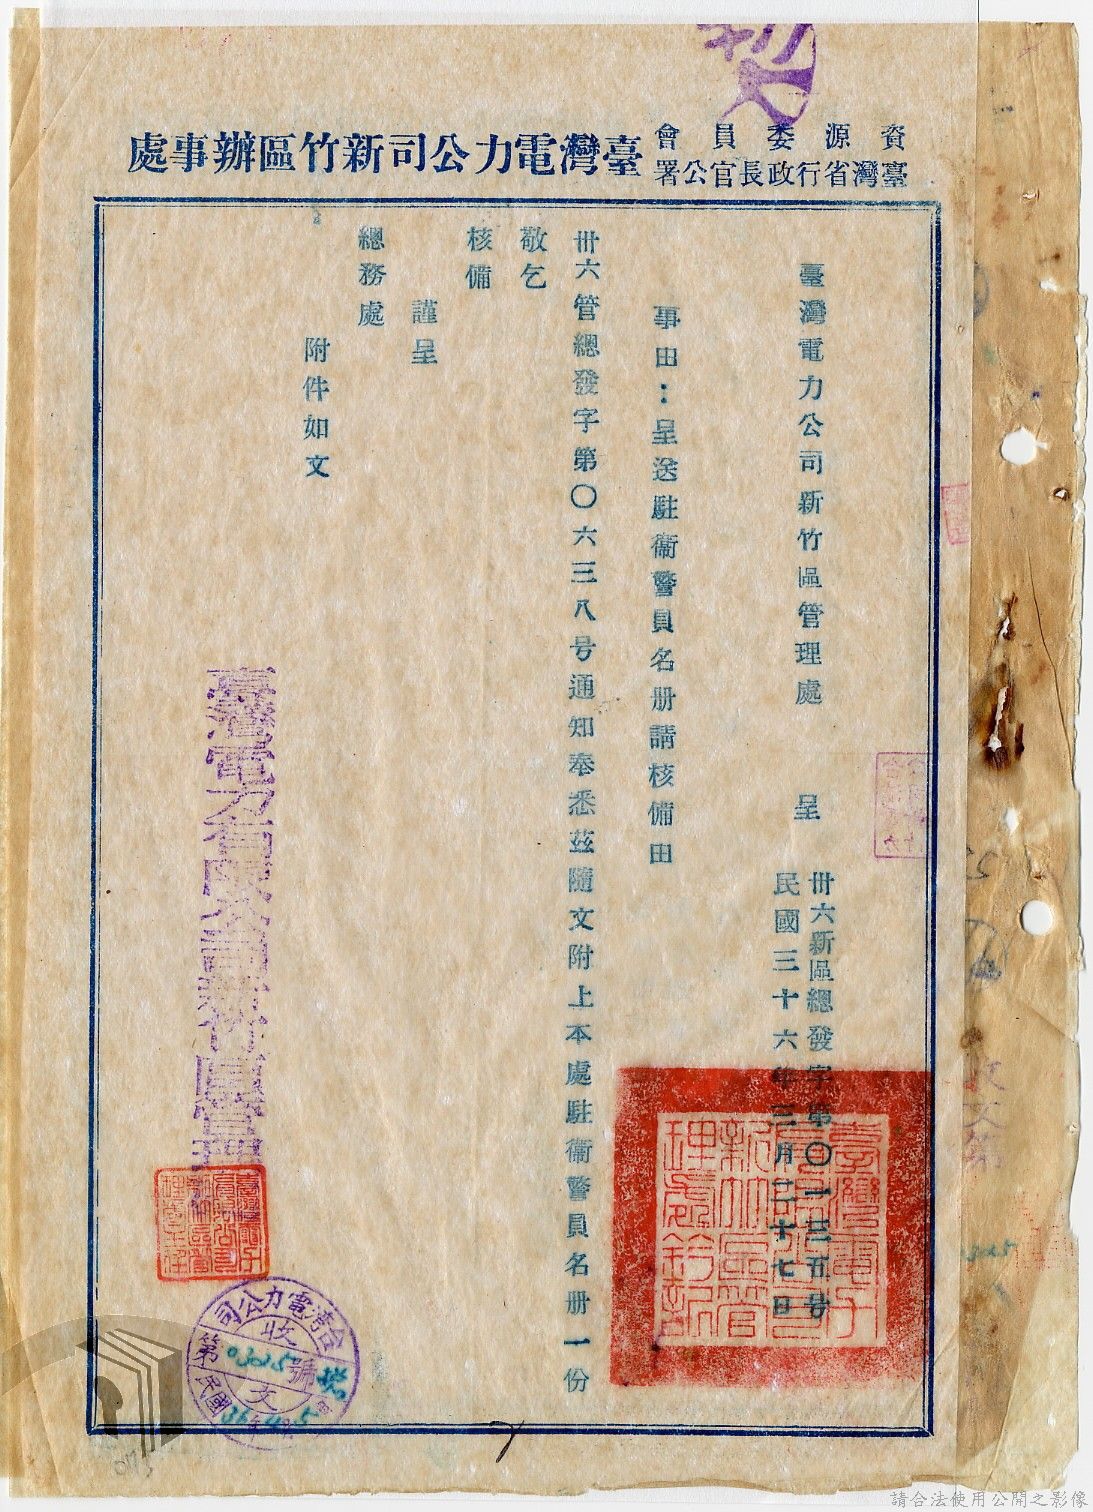 資源委員會
臺灣省行政長官公署
臺灣電力公司新竹區辦事處
臺灣電力公司新竹區管理處　呈
卅六新區總發字第〇一三五号
民國三十六年三月二十七日
事由：呈送駐衞警員名册請核備由
卅六管總發字第〇六三八号通知奉悉茲隨文附上本處駐衞警員名册一份
敬乞
核備
謹呈
總務處
附件如文
臺灣電力有限公司新竹區管理
台湾電力公司
收文
第 03025 號
民國 36 年 4 月 5
收文第
0173
請合法使用公開之影像